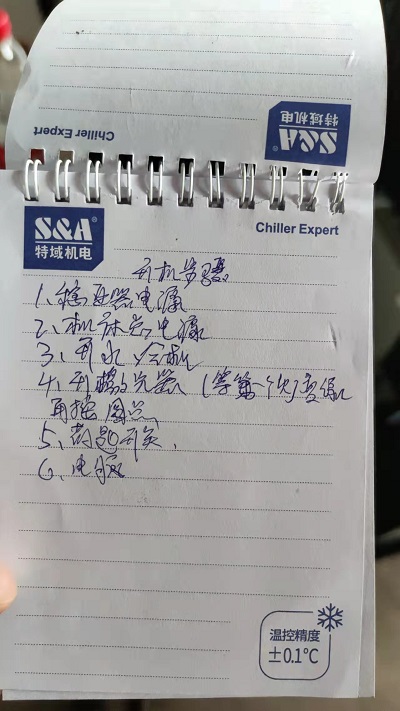 Chiller Expert
S&A®
特域机电
S&A®
特域机电
Chiller Expert
开机步骤
1、稳压器电源
2、机床总电源
3、开水冷机
4、开激光器 (等第一个灯变绿
再按圆点
5、钥匙开关、
6、电脑
温控精度
±0.1℃